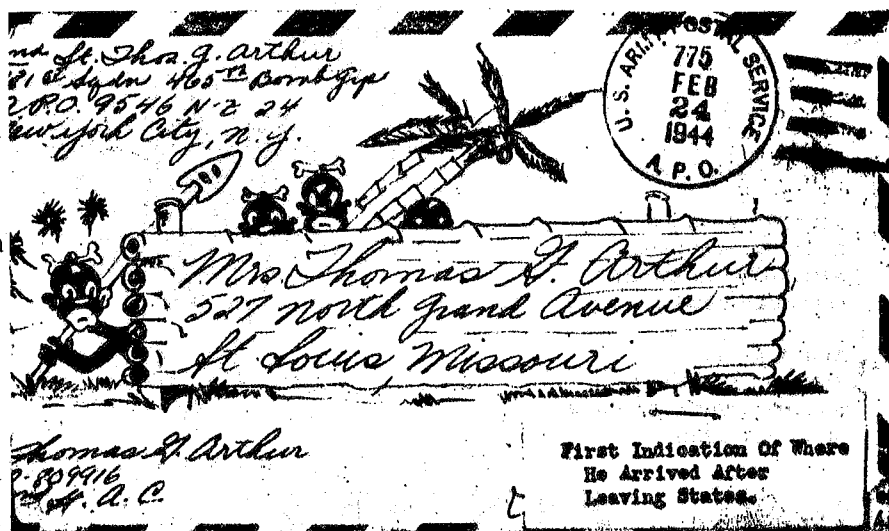 Lt. Thos. G. Arthur
Sqdn 465th Bomb Grp
A.P.O. 9546 N-Z 24
New York City, N.Y.
U.S. ARMY POSTAL SERVICE
775
FEB
24
1944
A.P.O.
Mrs Thomas G. Arthur
527 North Grand Avenue
St Louis Missouri
Thomas G. Arthur
809916
A.C.
First Indication Of Where
He Arrived After
Leaving States.